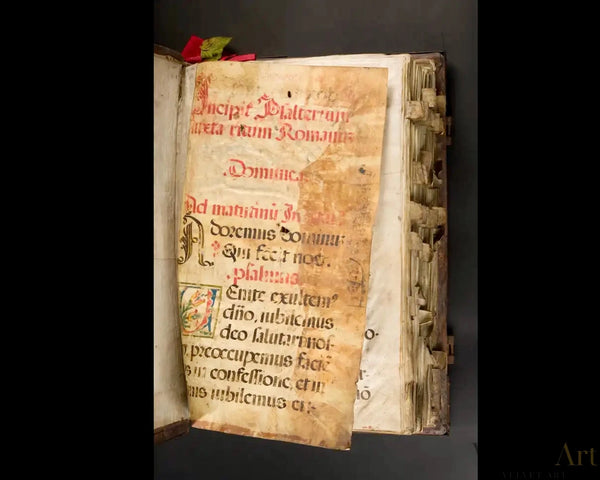 Incipit Psalterium
iuxta ritum Romanu
Dominica
Ad matutinu In
Adoremus dominu
Qui fecit nos.
psalmus
Uenite exultem⁹
dño, iubilemus
deo salutari nos
preoccupemus facie
in confessione, et in
mis iubilemus ei:
Art
VELVET ART